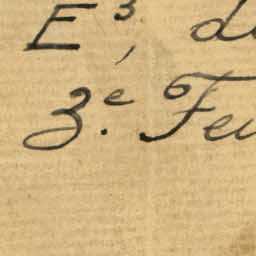 E³, d
3.e Feu